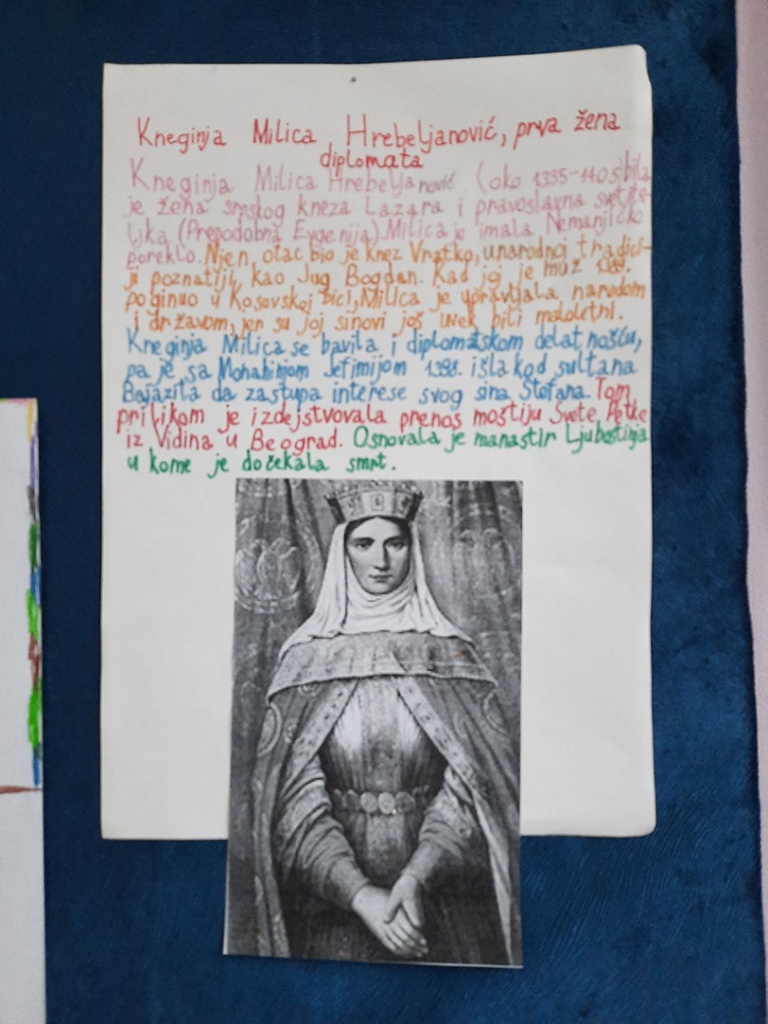 Kneginja Milica Hrebeljanović, prva žena
diplomata
Kneginja Milica Hrebeljanović (oko 1335-1405) bila
je žena srpskog kneza Lazara i pravoslavna svetite-
ljka (Prepodobna Evgenija). Milica je imala Nemanjićko
poreklo. Njen, otac bio je knez Vratko, u narodnoj tradici-
ji poznatiji, kao Jug Bogdan. Kad joj je muž 1389.
poginuo u Kosovskoj bici, Milica je upravljala narodom
i državom, jer su joj sinovi još uvek bili maloletni.
Kneginja Milica se bavila i diplomatskom delatnošću,
pa je sa Monahinjom Jefimijom 1398. išla kod sultana
Bajazita da zastupa interese svog sina Stefana. Tom
prilikom je izdejstvovala prenos moštiju Svete Petke
iz Vidina u Beograd. Osnovala je manastir Ljubostinja
u kome je dočekala smrt.